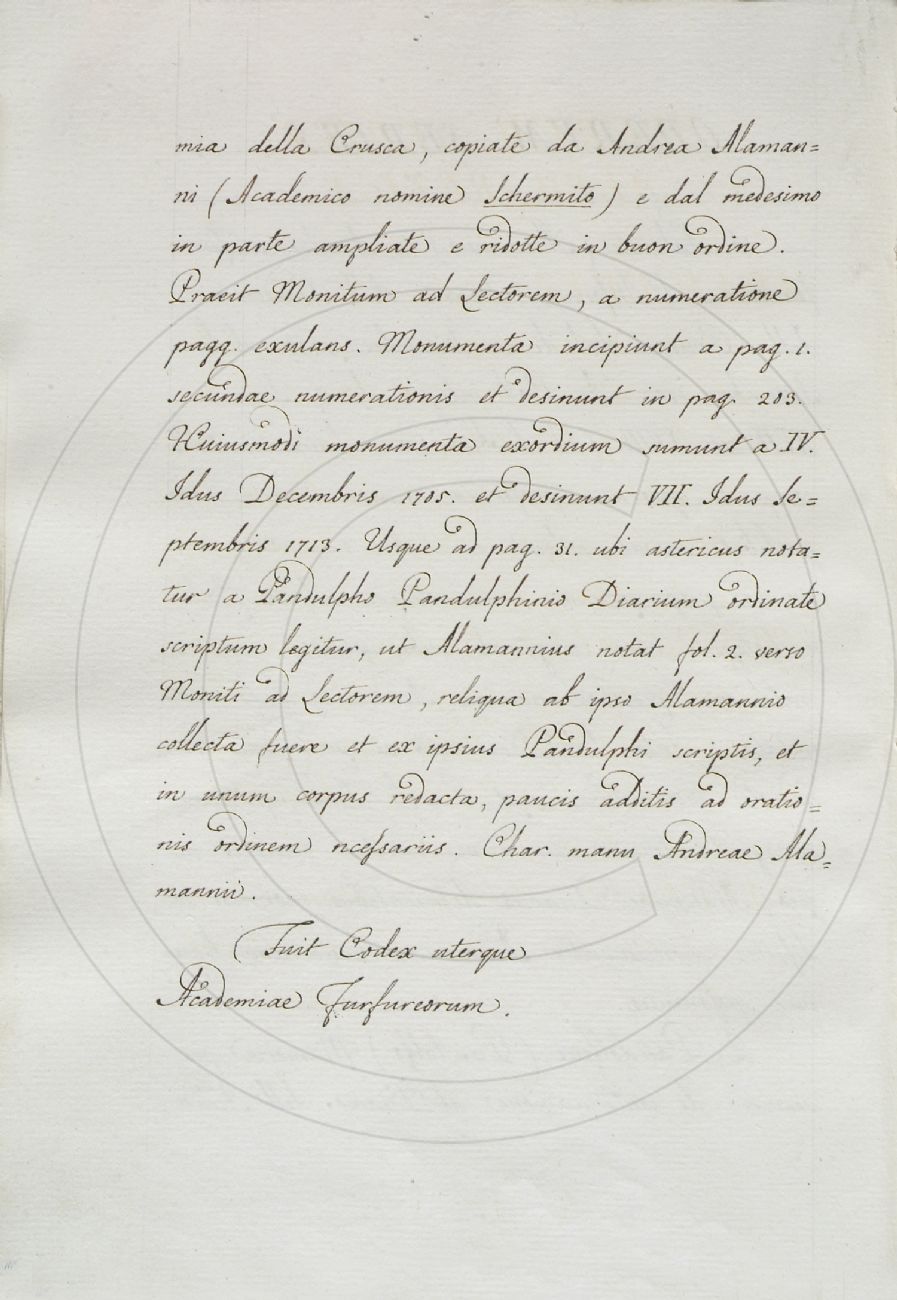 mia della Crusca, copiate da Andrea Alaman=
ni (Academico nomine Schermito) e dal medesimo
in parte ampliate e ridotte in buon ordine.
Praeit Monitum ad Lectorem, a numeratione
pagg. exulans. Monumenta incipiunt a pag. 1.
secundae numerationis et desinunt in pag. 203.
Huiusmodi monumenta exordium sumunt a IV.
Idus Decembris 1705. et desinunt VII. Idus Se=
ptembris 1713. Usque ad pag. 31. ubi astericus nota=
tur a Pandulpho Pandulphinio Diarium ordinate
scriptum legitur, ut Alamannius notat fol. 2. verso
Moniti ad Lectorem, reliqua ab ipso Alamannio
collecta fuere et ex ipsius Pandulphi scriptis, et
in unum corpus redacta, paucis additis ad oratio=
nis ordinem ncessariis. Char. manu Andreae Ala=
mannii.
Fuit Codex uterque
Academiae Furfureorum.